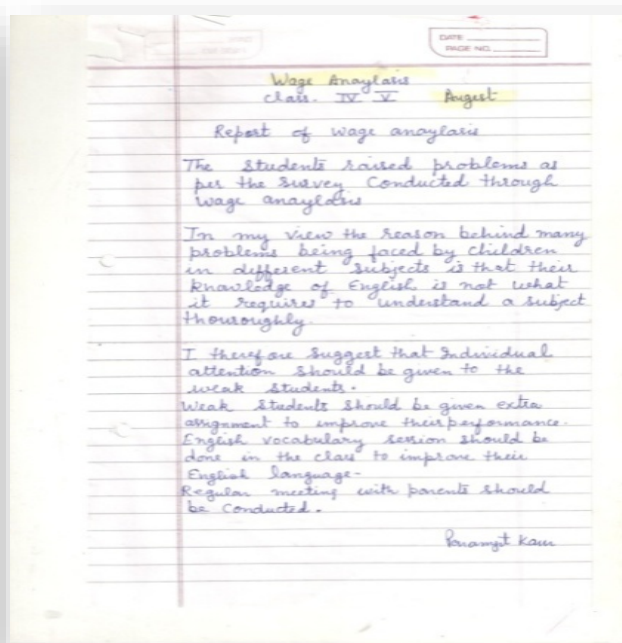 DATE
PAGE NO.
Wage Anaylasis
class. IV V Augest
Report of wage anaylasis
The Students raised problems as
per the survey Conducted through
wage anaylasis
In my view the reason behind many
problems being faced by children
in different subjects is that their
knowledge of English is not what
it requires to understand a subject
thouroughly.
I therefore suggest that Individual
attention should be given to the
weak students.
Weak Students should be given extra
assignment to improve their performance.
English vocabulary session should be
done in the class to improve their
English language.
Regular meeting with parents should
be Conducted.
Kaur